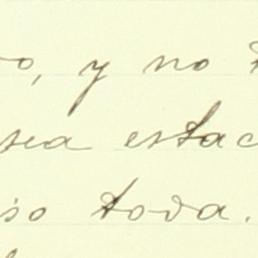 o, y no
sea estac
so toda.